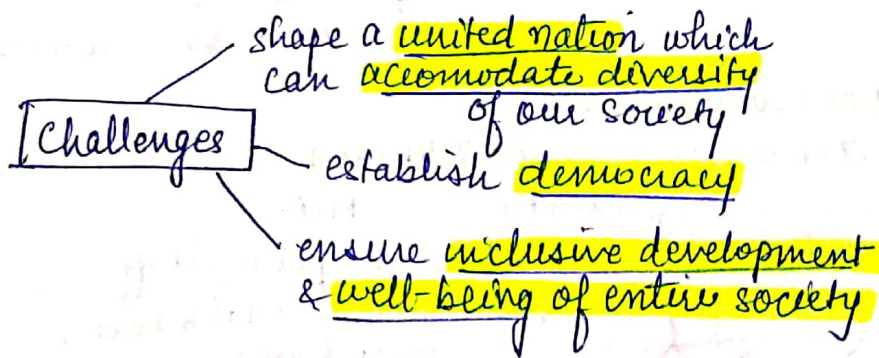 shape a united nation which
can accomodate diversity
of our society
Challenges
establish democracy
ensure inclusive development
& well-being of entire society